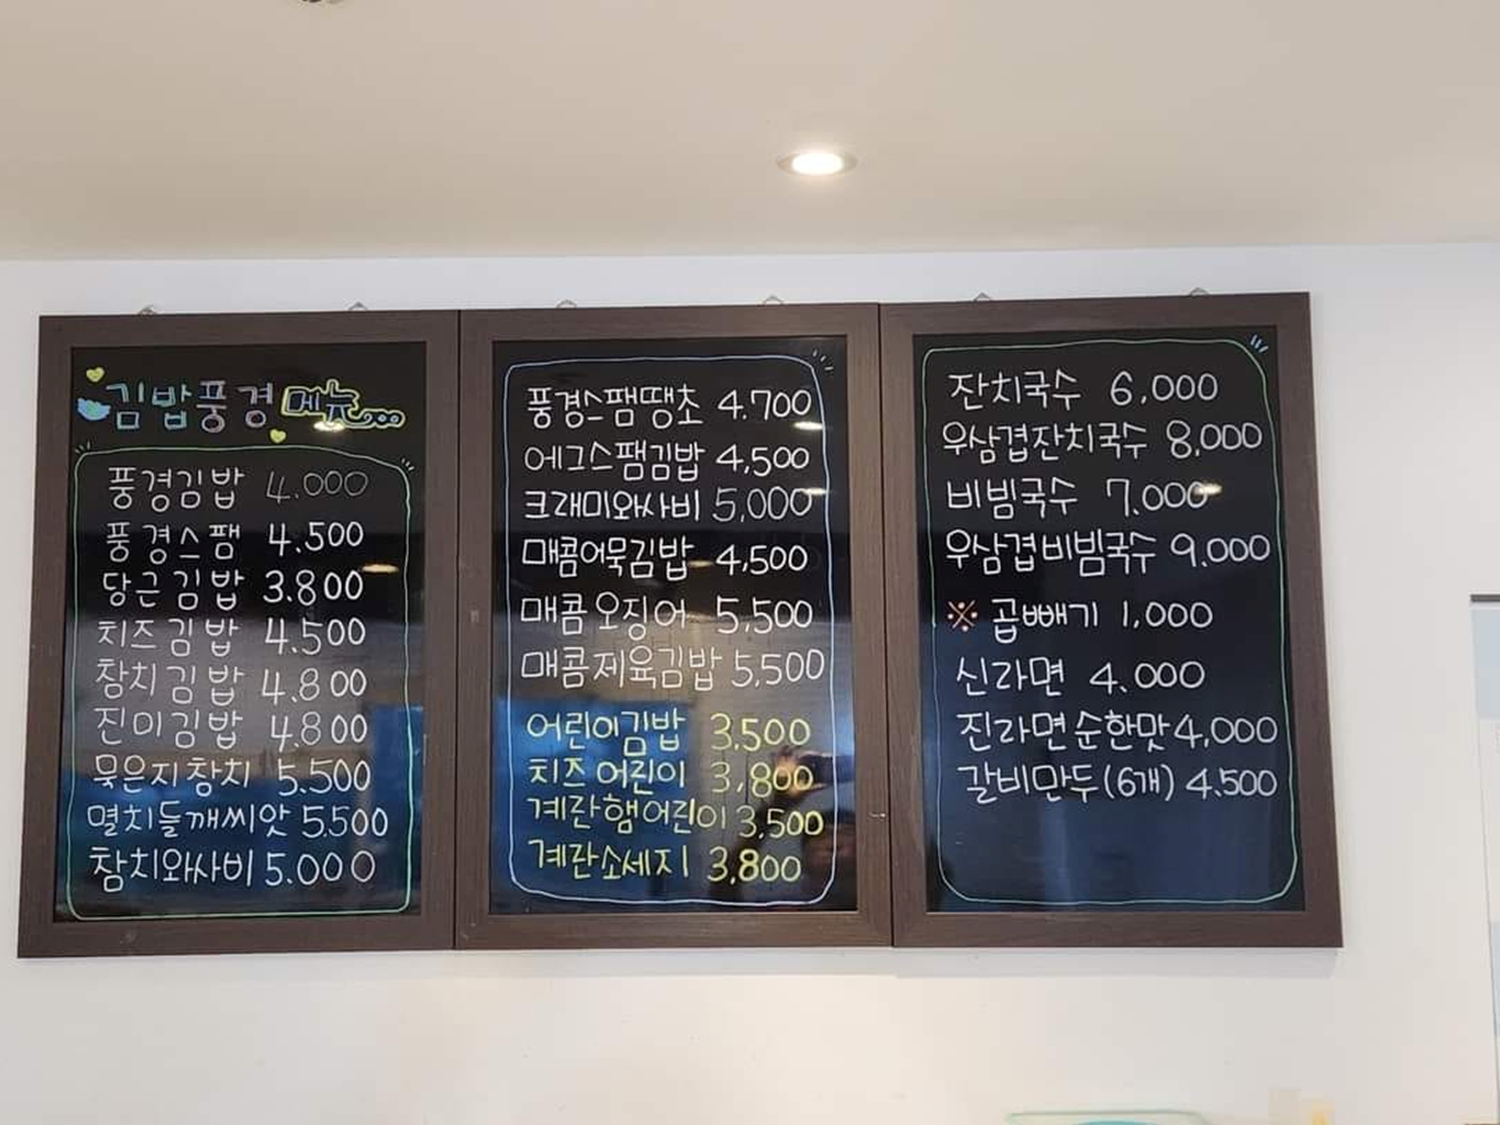 김밥풍경 메뉴...
풍경김밥 4.000
풍경스팸 4.500
당근김밥 3.800
치즈김밥 4.500
참치김밥 4.800
진미김밥 4.800
묵은지참치 5.500
멸치들깨씨앗 5.500
참치와사비 5.000
풍경스팸땡초 4.700
에그스팸김밥 4,500
크래미와사비 5,000
매콤어묵김밥 4,500
매콤오징어 5,500
매콤제육김밥 5,500
어린이김밥 3.500
치즈어린이 3,800
계란햄어린이 3,500
계란소세지 3,800
잔치국수 6,000
우삼겹잔치국수 8,000
비빔국수 7.000
우삼겹비빔국수 9.000
※ 곱빼기 1,000
신라면 4.000
진라면순한맛 4,000
갈비만두(6개) 4.500